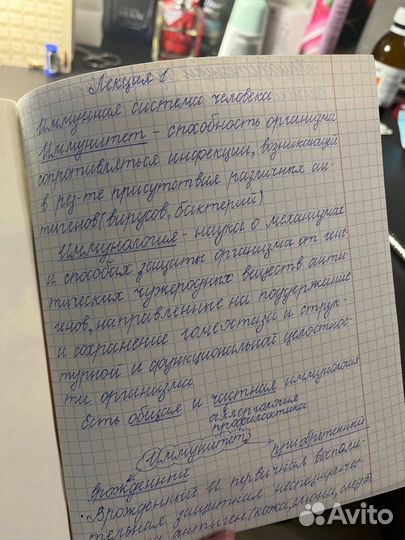 Лекция 1
Иммунная система человека
Иммунитет - способность организма
сопротивляться инфекции, возникающей
в рез-те присутствия различных ан-
тигенов (вирусов, бактерий)
Иммунология - наука о механизмах
и способах защиты организма от гене-
тических чужеродных веществ анти-
генов, направленные на поддержание
и сохранение гомеостаза и струк-
турной и функциональной целостнос-
ти организма
Есть общая и частная иммунология
аллергология
профилактика
Иммунитет
врожденный приобретенный
· Врожденный и первичная воспали-
тельная защитная неспецифичес-
антиген (кожа,
Avito